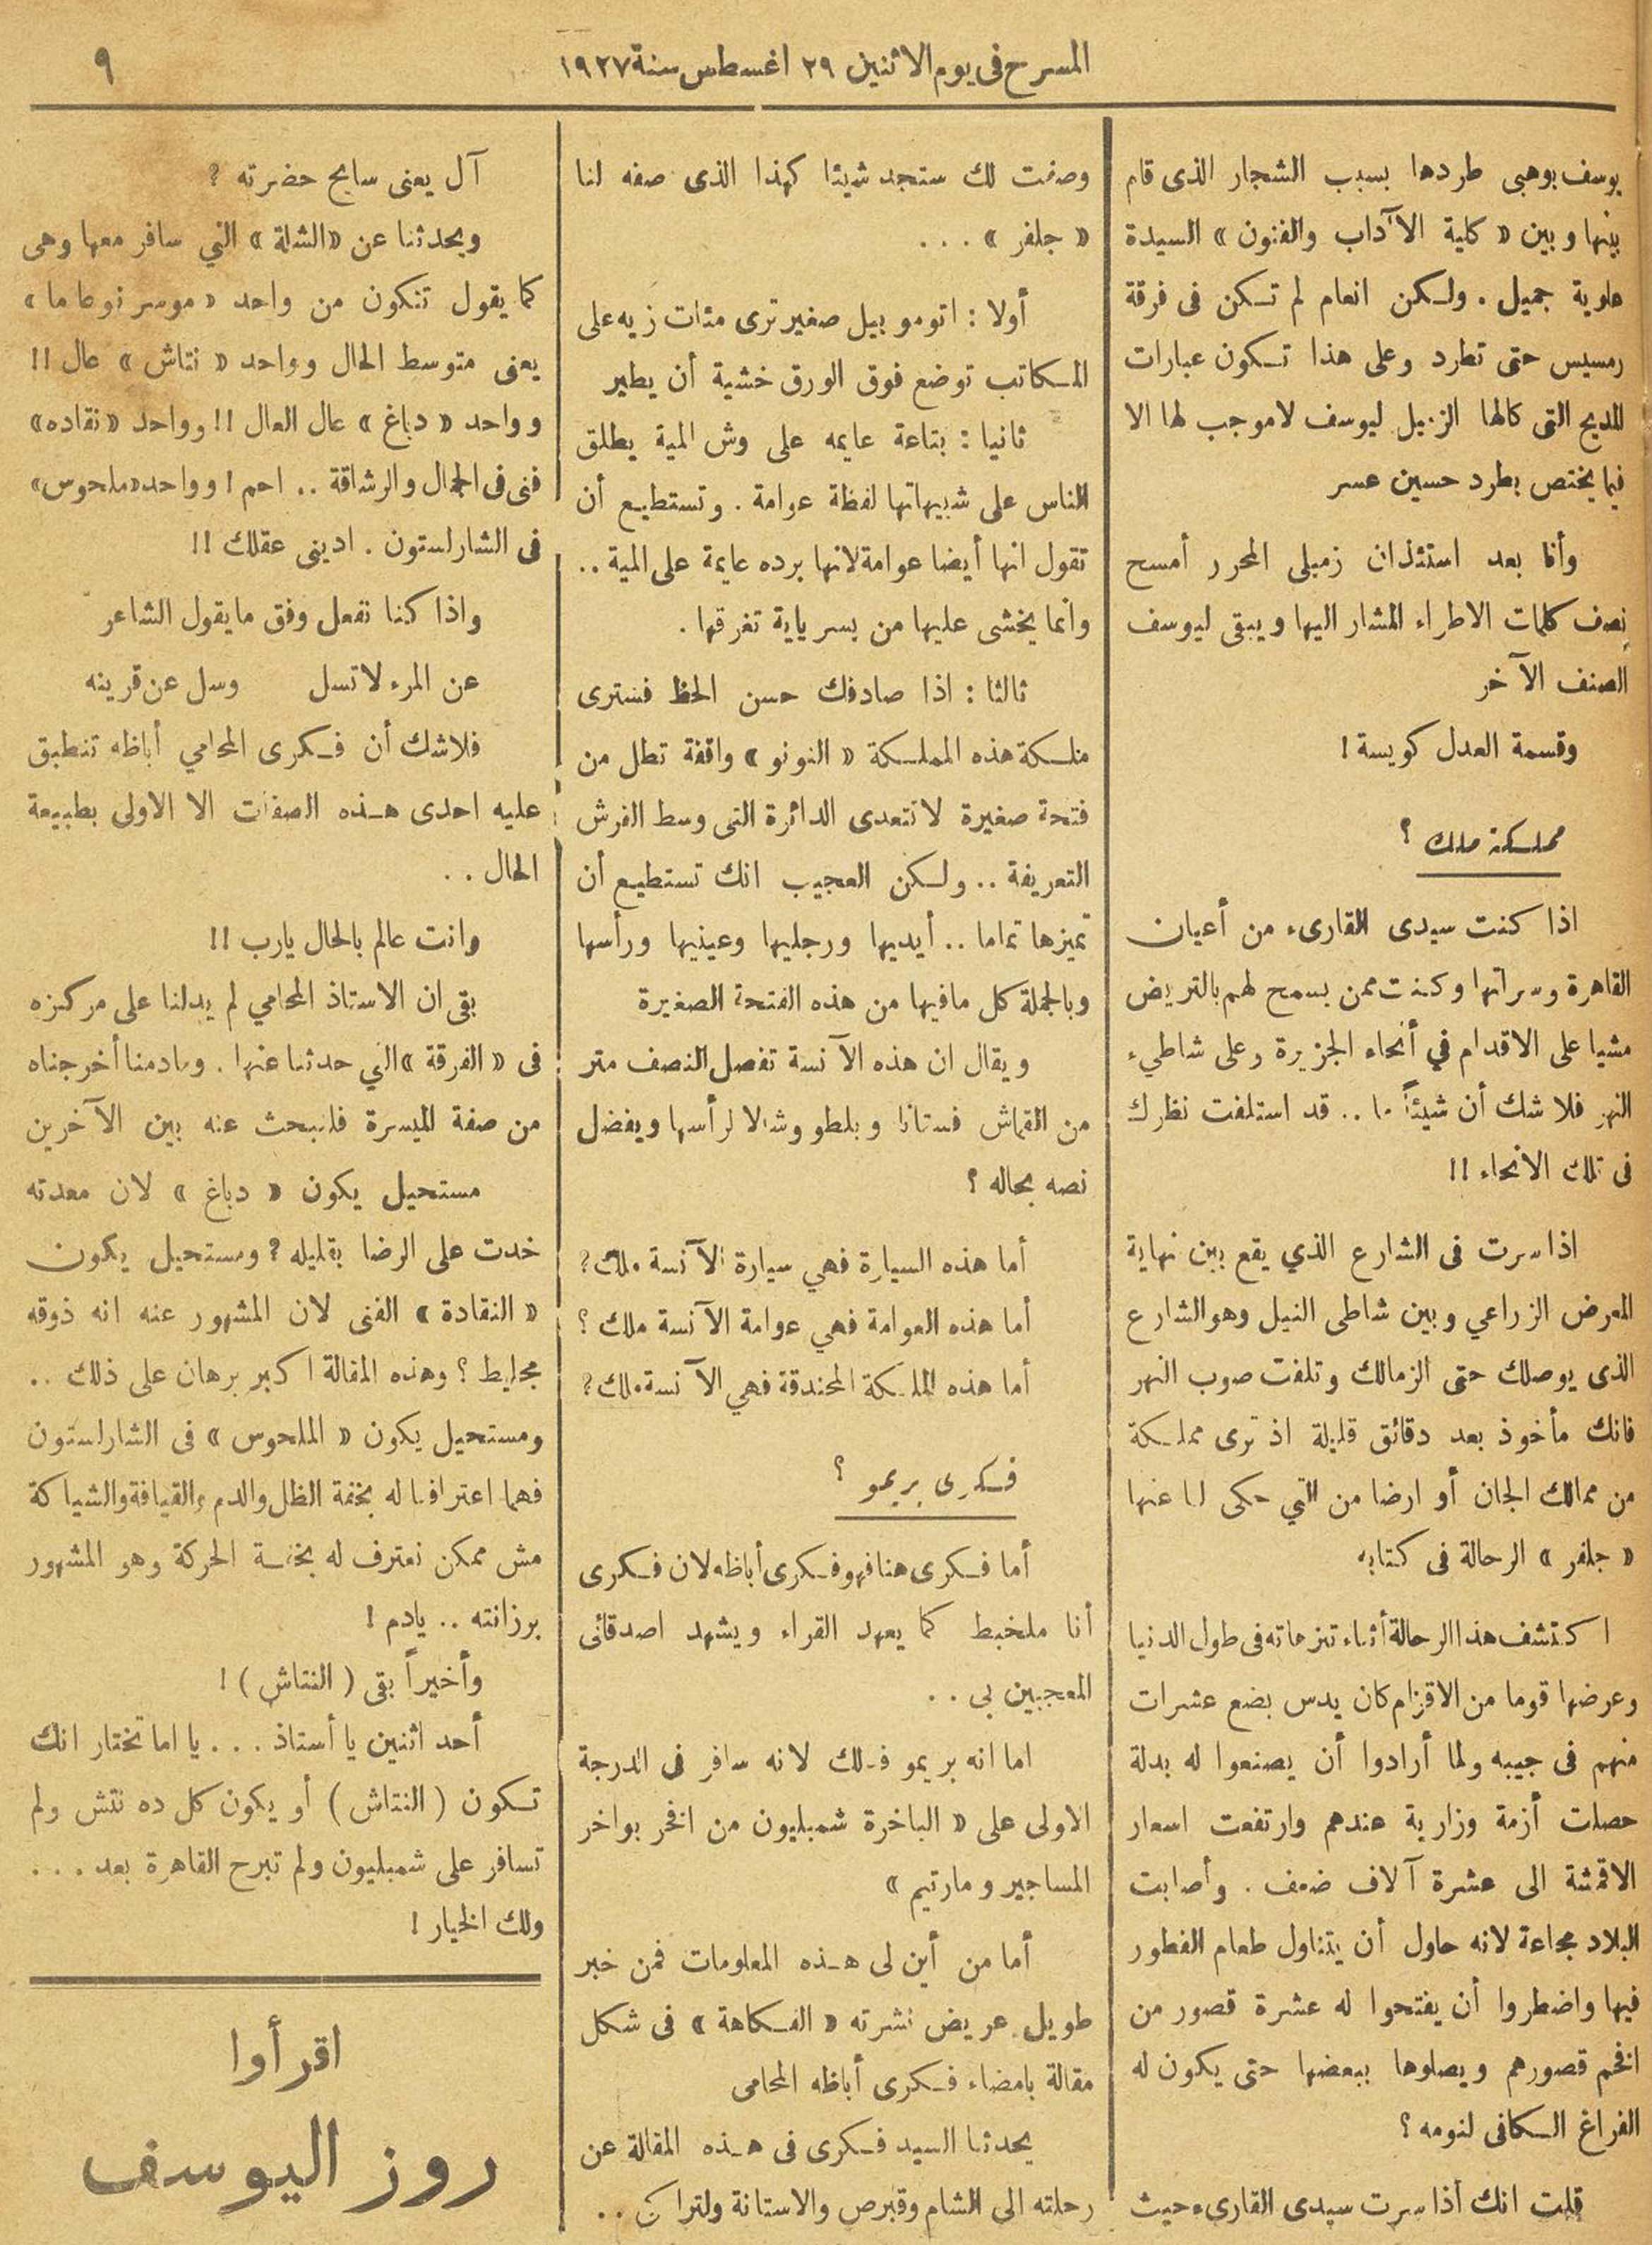 المسرح فى يوم الاثنين ٢٩ اغسطس سنة ١٩٢٧
٩
يوسف بوهبى طردها بسبب الشجار الذى قام
بينها وبين « كلية الآداب والفنون » السيدة
علوية جميل . ولكن انعام لم تكن فى فرقة
رمسيس حتى تطرد وعلى هذا تكون عبارات
المديح التى كالها الزميل ليوسف لاموجب لها الا
فيما يختص بطرد حسين عسر
وأنا بعد استئذان زميلى المحرر أمسح
نصف كلمات الاطراء المشار اليها ويبقى ليوسف
الصنف الآخر
وقسمة العدل كويسة !
مملكة ملك ؟
اذا كنت سيدى القارىء من أعيان
القاهرة وسراتها وكنت ممن يسمح لهم بالتريض
مشيا على الاقدام في أنحاء الجزيرة وعلى شاطيء
النهر فلا شك أن شيئاً ما .. قد استلفت نظرك
فى تلك الانحاء !!
اذا سرت فى الشارع الذي يقع بين نهاية
المعرض الزراعي وبين شاطى النيل وهو الشارع
الذى يوصلك حتى الزمالك وتلفت صوب النهر
فانك مأخوذ بعد دقائق قليلة اذ ترى مملكة
من ممالك الجان أو ارضا من التي حكى لنا عنها
« جلفر » الرحالة فى كتابه
اكتشف هذا الرحالة أثناء تنزهاته فى طول الدنيا
وعرضها قوما من الاقزام كان يدس بضع عشرات
منهم فى جيبه ولما أرادوا أن يصنعوا له بدلة
حصلت أزمة وزارية عندهم وارتفعت اسعار
الاقمشة الى عشرة آلاف ضعف . وأصابت
البلاد مجاعة لانه حاول أن يتناول طعام الفطور
فيها واضطروا أن يفتحوا له عشرة قصور من
افخم قصورهم ويصلوها ببعضها حتى يكون له
الفراغ الكافى لنومه ؟
قلت انك أذا سرت سيدى القارىء حيث
وصفت لك ستجد شيئا كهذا الذى صفه لنا
« جلفر » . . .
أولا : اتوموبيل صغير ترى مئات زيه على
المكاتب توضع فوق الورق خشية أن يطير
ثانيا : بتاعة عايمه على وش المية يطلق
الناس على شبيهاتها لفظة عوامة . وتستطيع أن
تقول انها أيضا عوامة لانها برده عايمة على المية ..
وانما يخشى عليها من بسرياية تغرقها .
ثالثا : اذا صادفك حسن الحظ فسترى
ملكة هذه المملكة « النونو » واقفة تطل من
فتحة صغيرة لا تتعدى الدائرة التى وسط الفرش
التعريفة .. ولكن العجيب انك تستطيع أن
تميزها تماما .. أيديها ورجليها وعينيها ورأسها
وبالجملة كل مافيها من هذه الفتحة الصغيرة
ويقال ان هذه الآنسة تفصل النصف متر
من القماش فستانا وبلطو وشالا لرأسها ويفضل
نصه بحاله ؟
أما هذه السيارة فهي سيارة الآنسة ملك ؟
أما هذه العوامة فهي عوامة الآنسة ملك ؟
أما هذه الملكة المحندقة فهي الآنسة ملك ؟
فكرى بريمو ؟
أما فكرى هنا فهو فكرى أباظه لان فكرى
أنا ملخبط كما يعهد القراء ويشهد اصدقائى
المعجبين بي . .
اما انه بريمو فلك لانه سافر فى الدرجة
الاولى على « الباخرة شمبليون من افخر بواخر
المساجير ومارتيم »
أما من أين لى هذه المعلومات فمن خبر
طويل عريض نشرته « الفكاهة » فى شكل
مقالة بامضاء فكرى أباظه المحامى
يحدثنا السيد فكرى فى هذه المقالة عن
رحلته الى الشام وقبرص والاستانة ولتراكن ..
آل يعنى سايح حضرته ؟
ويحدثنا عن « الشلة » التي سافر معها وهى
كما يقول تتكون من واحد « موسر نوعا ما »
يعنى متوسط الحال وواحد « نتاش » عال !!
وواحد « دباغ » عال العال !! وواحد « نقاده »
فنى فى الجمال والرشاقة .. احم ! وواحد « ملحوس »
فى الشارلستون . ادينى عقلك !!
واذا كنا نفعل وفق مايقول الشاعر
عن المرء لا تسل وسل عن قرينه
فلاشك أن فكرى المحامي أباظه تنطبق
عليه احدى هذه الصفات الا الاولى بطبيعة
الحال . .
وانت عالم بالحال يارب !!
بقى ان الاستاذ المحامي لم يدلنا على مركزه
فى « الفرقة » التي حدثنا عنها . ومادمنا أخرجناه
من صفة الميسرة فلنبحث عنه بين الآخرين
مستحيل يكون « دباغ » لان معدته
خدت على الرضا بقليله ؟ ومستحيل يكون
« النقادة » الفنى لان المشهور عنه انه ذوقه
مجليط ؟ وهذه المقالة اكبر برهان على ذلك ..
ومستحيل يكون « الملحوس » فى الشارلستون
فهما اعترافنا له بخفة الظل والدم والقيافة والشياكة
مش ممكن نعترف له بخفة الحركة وهو المشهور
برزانته .. يادم !
وأخيراً بقى ( النتاش ) !
أحد اثنين يا أستاذ . . . يا اما تختار انك
تكون ( النتاش ) أو يكون كل ده نتش ولم
تسافر على شمبليون ولم تبرح القاهرة بعد . . .
ولك الخيار !
اقرأوا
روز اليوسف